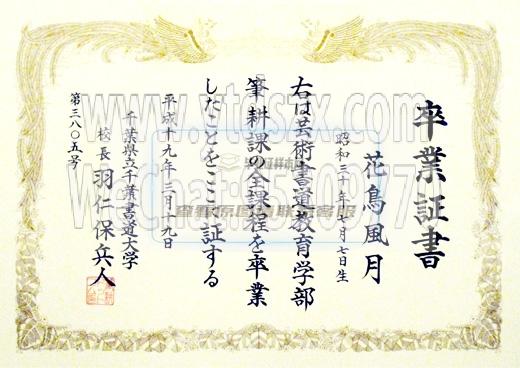 卒業証書
花鳥風月
昭和三十年 月七日生
右は芸術書道教育学部
筆耕課の全課程を卒業
したことをここ 証する
平成十九年三月十九日
千葉県立千葉書道大学
校長 羽仁保兵人
第三八〇五号